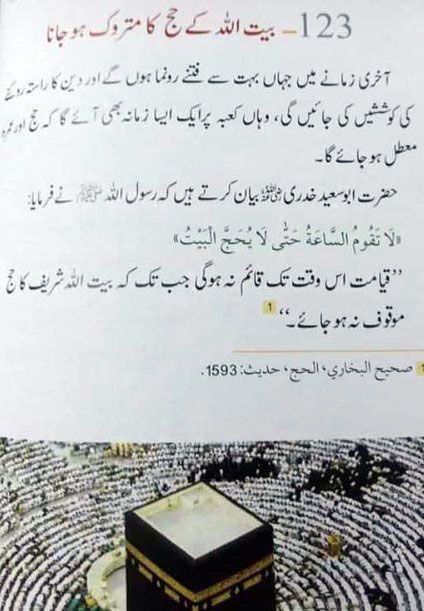 123۔ بیت اللہ کے حج کا متروک ہو جانا
آخری زمانے میں جہاں بہت سے فتنے رونما ہوں گے اور دین کا راستہ روکنے
کی کوششیں کی جائیں گی، وہاں کعبہ پر ایک ایسا زمانہ بھی آئے گا کہ حج اور عمرہ
معطل ہو جائے گا۔
حضرت ابوسعید خدری رضی اللہ عنہ بیان کرتے ہیں کہ رسول اللہ ﷺ نے فرمایا:
«لَا تَقُومُ السَّاعَةُ حَتَّى لَا يُحَجَّ الْبَيْتُ»
’’قیامت اس وقت تک قائم نہ ہوگی جب تک کہ بیت اللہ شریف کا حج
موقوف نہ ہو جائے۔‘‘ 1
1 صحيح البخاري، الحج، حديث: 1593.